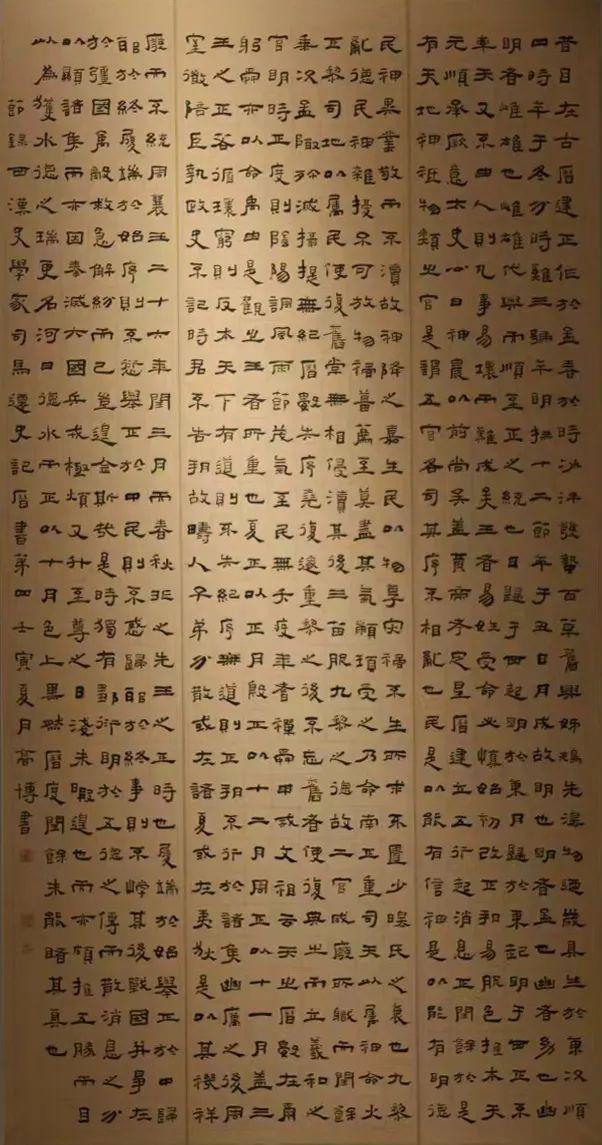 昔自在古曆建正作於孟春於時冰泮發蟄百草奮興秭鳺先滜物迺歲具生於東次順
四時卒于冬分時雞三號卒明撫十二節卒于丑日月成故明也明者孟也幽者幼也幽
明者雌雄也雌雄代興而順至正之統也日歸于西起明於東月歸於東起明于西正不
率天又不由人則凡事易壞而難成矣王者易姓受命必慎始初改正朔易服色推本天
元順承厥意太史公曰神農以前尚矣蓋黃帝考定星曆建立五行起消息正閏餘於是
有天地神祇物類之官是謂五官各司其序不相亂也民是以能有信神是以能有明德
民神異業敬而不瀆故神降之嘉生民以物享災禍不生所求不匱少暤氏之衰也九黎
亂德民神雜擾不可放物禍菑薦至莫盡其氣顓頊受之乃命南正重司天以屬神命火
正黎司地以屬民使復舊常無相侵瀆其後三苗服九黎之德故二官咸廢所職而閏餘
乖次孟陬殄滅攝提無紀曆數失序堯復遂重黎之後不忘舊者使復典之而立羲和之
官明時正度則陰陽調風雨節茂氣至民無夭疫年耆禪舜申戒文祖云天之曆數在爾
躬舜亦以命禹由是觀之王者所重也夏正以正月殷正以十二月周正以十一月蓋三
王之正若循環窮則反本天下有道則不失紀序無道則正朔不行於諸侯幽厲之後周
室微陪臣執政史不記時君不告朔故疇人子弟分散或在諸夏或在夷狄是以其禨祥
廢而不統周襄王二十六年閏三月而春秋非之先王之正時也履端於始舉正於中歸
邪於終履端於始序則不愆舉正於中民則不惑歸邪於終事則不悖其後戰國并爭在
於彊國禽敵救急解紛而已豈遑念斯哉是時獨有鄒衍明於五德之傳而散消息之分
以顯諸侯而亦因秦滅六國兵戎極煩又升至尊之日淺未暇遑也而亦頗推五勝而自
以為獲水德之瑞更名河曰德水而正以十月色上黑然曆度閏餘未能睹其真也
節錄西漢史學家司馬遷史記曆書第四壬寅夏月高博書